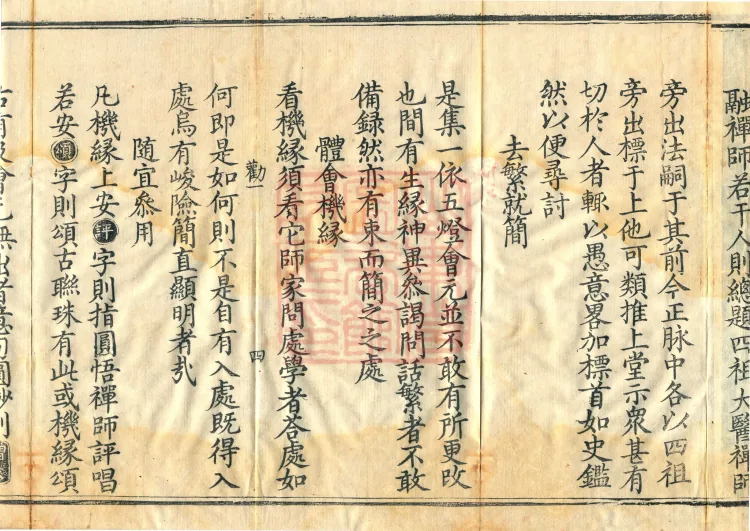 融禪師若干人則總題四祖大醫禪師
旁出法嗣于其前今正脉中各以四祖
旁出標于上他可類推上堂示眾甚有
切於人者輙以愚意畧加標首如史鑑
然以便尋討
去繁就簡
是集一依五燈會元並不敢有所更改
也間有生緣神異叅謁問話繁者不敢
備録然亦有束而簡之之處
體會機緣
看機緣須看它師家問處學者荅處如
勸一
四
何即是如何則不是自有入處既得入
處烏有峻險簡直顯明者㢤
随宜叅用
凡機緣上安評字則指圓悟禪師評唱
若安頌字則頌古聯珠有此或機緣頌